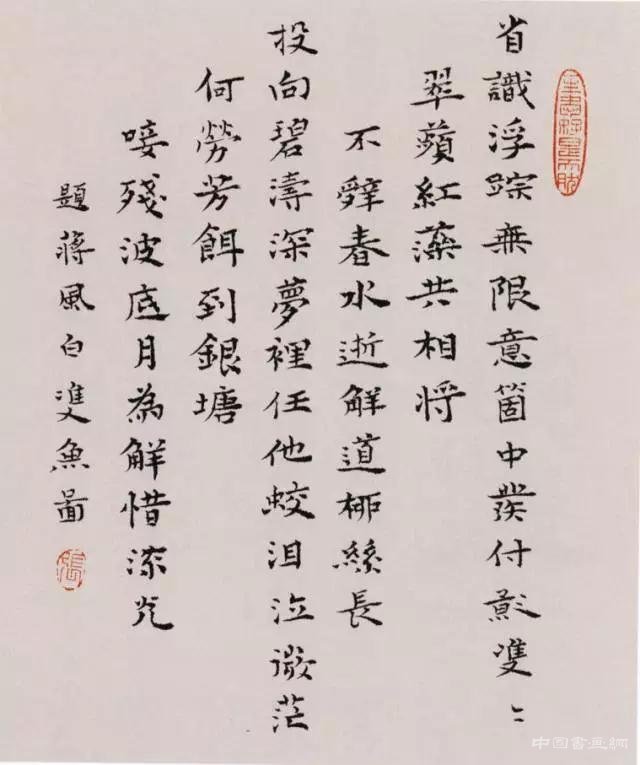 省識浮踪無限意箇中發付影雙〻
翠蘋紅藻共相將
不辭春水逝解道柳絲長
投向碧濤深夢裡任他蛟泪泣微茫
何勞芳餌到銀塘
唼殘波底月為解惜流光
題蔣風白雙魚圖
張
中国書画網